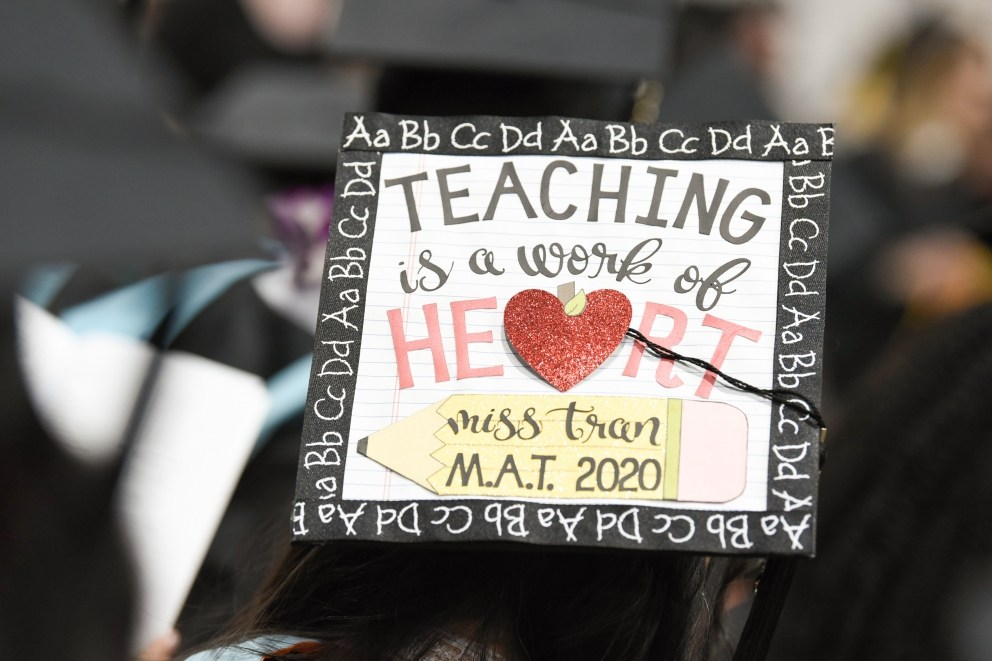 Aa Bb Cc Dd Aa Bb Cc Dd Aa B
TEACHING
is a work of
HE RT
miss tran
M.A.T. 2020
Aa Bb Cc Dd Aa Bb Cc Dd
Bb Cc Dd Aa Bb Cc Dd Aa
Aa Bb Cc Dd Aa Bb Cc Dd Aa B